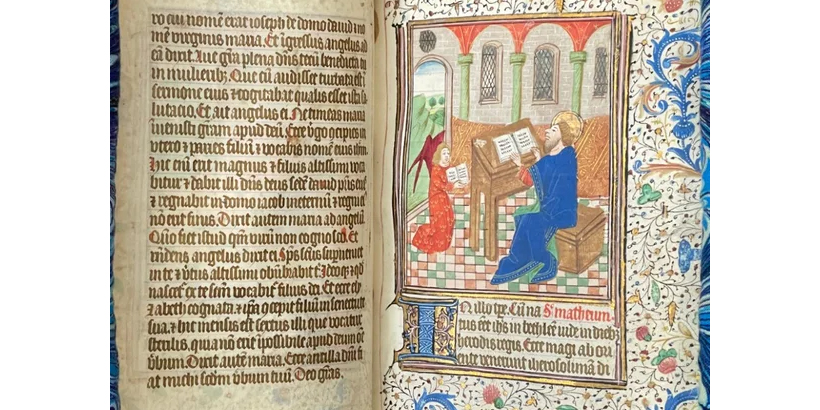 ro cui nomē erat ioseph de domo dauid ⁊ no
mē virginis maria. Et īgressus angelus ad
eā dixit. Aue gr̄a plena dn̄s tecū benedicta tu
in mulieribꝫ. Que cū audisset turbata est ī
sermone eius ⁊ cogitabat qualis esset ista sa
lutacio. Et ait angelus ei. Ne timeas maria
īuenisti gr̄am apud deū. Ecce v̄go ꝯcipies ī
vtero ⁊ paries filiū ⁊ vocabis nomē eius ih̄m.
Hic erit magnus ⁊ filius altissimi voca
bitur ⁊ dabit illi dn̄s deus sedē dauid pr̄is eius
⁊ regnabit in domo iacob ī eternū ⁊ regni eiꝰ
nō erit finis. Dixit autem maria ad angelū.
Quō fiet istud qm̄ virū non cognosco. Et
rn̄dens angelus dixit ei. Sp̄s sc̄s supueniet
in te ⁊ v̄tus altissimi obūbrabit t̄. Ideoqꝫ qd̄
nascet̉ ex te sc̄m vocabit̉ filius dei. Et ecce
elyzabeth cognata tua ⁊ ip̄a ꝯcepit filiū in senectute
sua. ⁊ hic mensis est sextus illi que vocatur
sterilis, quia nō erit īpossibile apud deum oē
v̄bum. Dixit autē maria. Ecce ancilla dn̄i fi
at michi sc̄dm v̄bum tuū. Deo gr̄as.
In illo tp̄e. Cū na S. matheum.
tus eēt ih̄s in bethleē iude in diebꝫ
herodis regis. Ecce magi ab ori
ente venerunt iherosolimā di